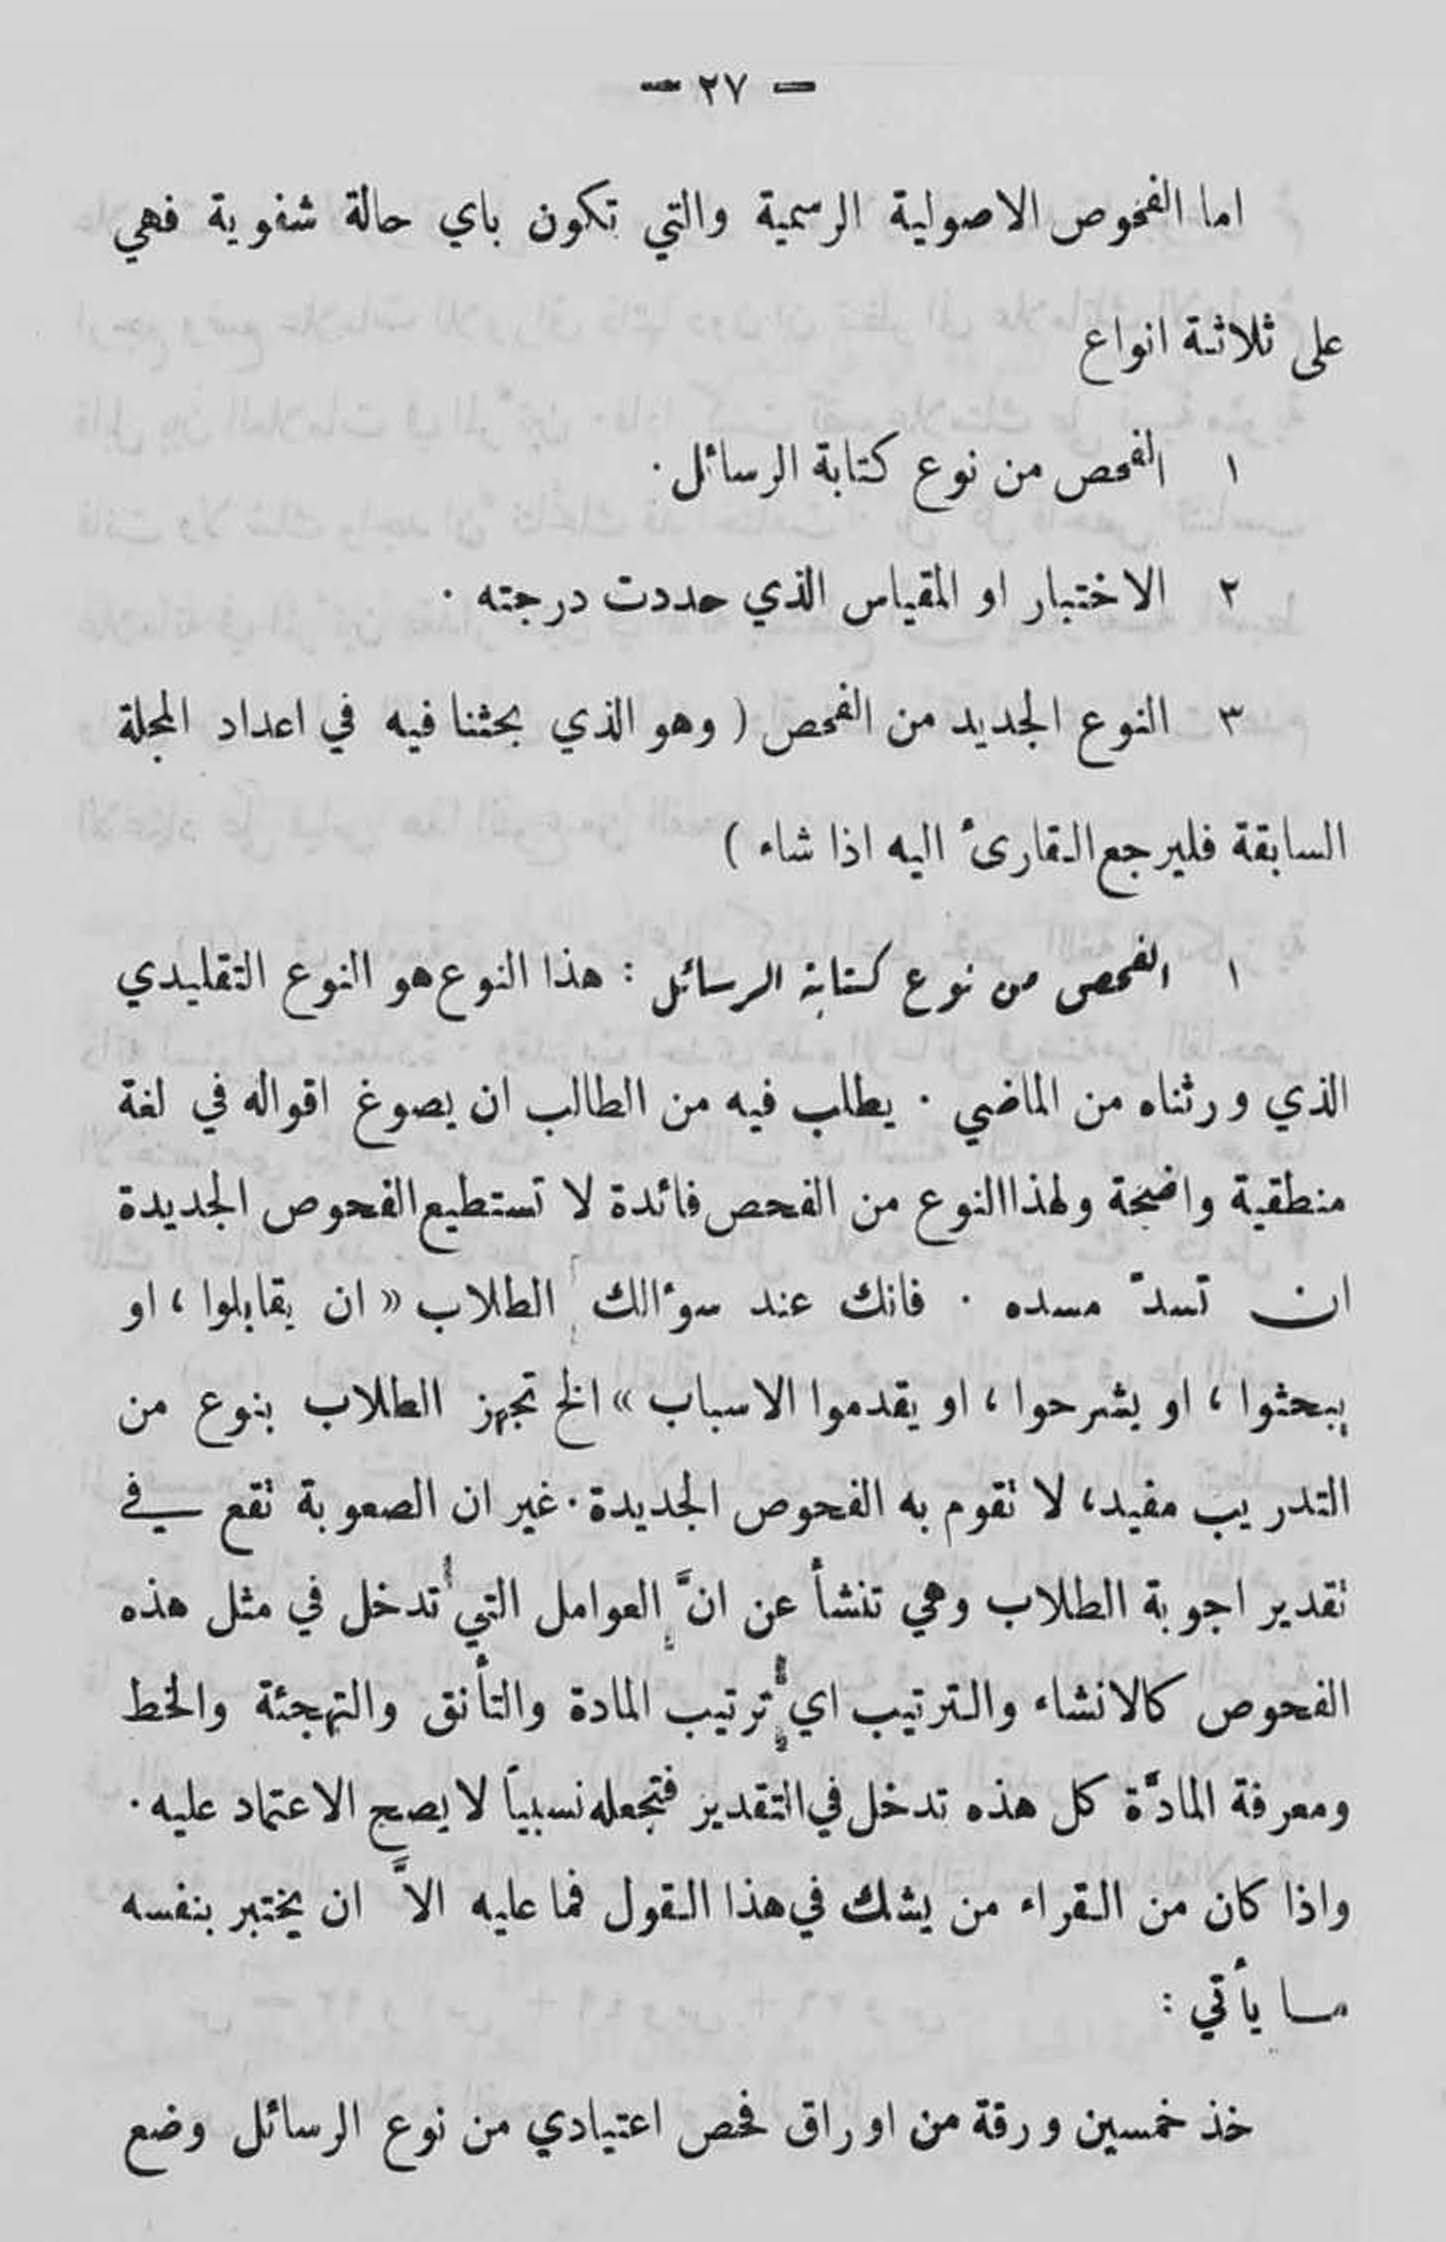 — ٢٧ —
اما الفحوص الاصولية الرسمية والتي تكون باي حالة شفوية فهي
على ثلاثة انواع
١ الفحص من نوع كتابة الرسائل .
٢ الاختبار او المقياس الذي حددت درجته .
٣ النوع الجديد من الفحص ( وهو الذي بحثنا فيه في اعداد المجلة
السابقة فليرجع القارئ اليه اذا شاء )
١ الفحص من نوع كتابة الرسائل : هذا النوع هو النوع التقليدي
الذي ورثناه من الماضي . يطلب فيه من الطالب ان يصوغ اقواله في لغة
منطقية واضحة ولهذا النوع من الفحص فائدة لا تستطيع الفحوص الجديدة
ان تسدّ مسده . فانك عند سؤالك الطلاب « ان يقابلوا ، او
يبحثوا ، او يشرحوا ، او يقدموا الاسباب » الخ تجهز الطلاب بنوع من
التدريب مفيد، لا تقوم به الفحوص الجديدة . غير ان الصعوبة تقع في
تقدير اجوبة الطلاب وهي تنشأ عن انَّ العوامل التي تدخل في مثل هذه
الفحوص كالانشاء والترتيب اي ترتيب المادة والتأنق والتهجئة والخط
ومعرفة المادَّة كل هذه تدخل في التقدير فتجعله نسبياً لا يصح الاعتماد عليه .
واذا كان من القراء من يشك في هذا القول فما عليه الاَّ ان يختبر بنفسه
ما يأتي :
خذ خمسين ورقة من اوراق فحص اعتيادي من نوع الرسائل وضع